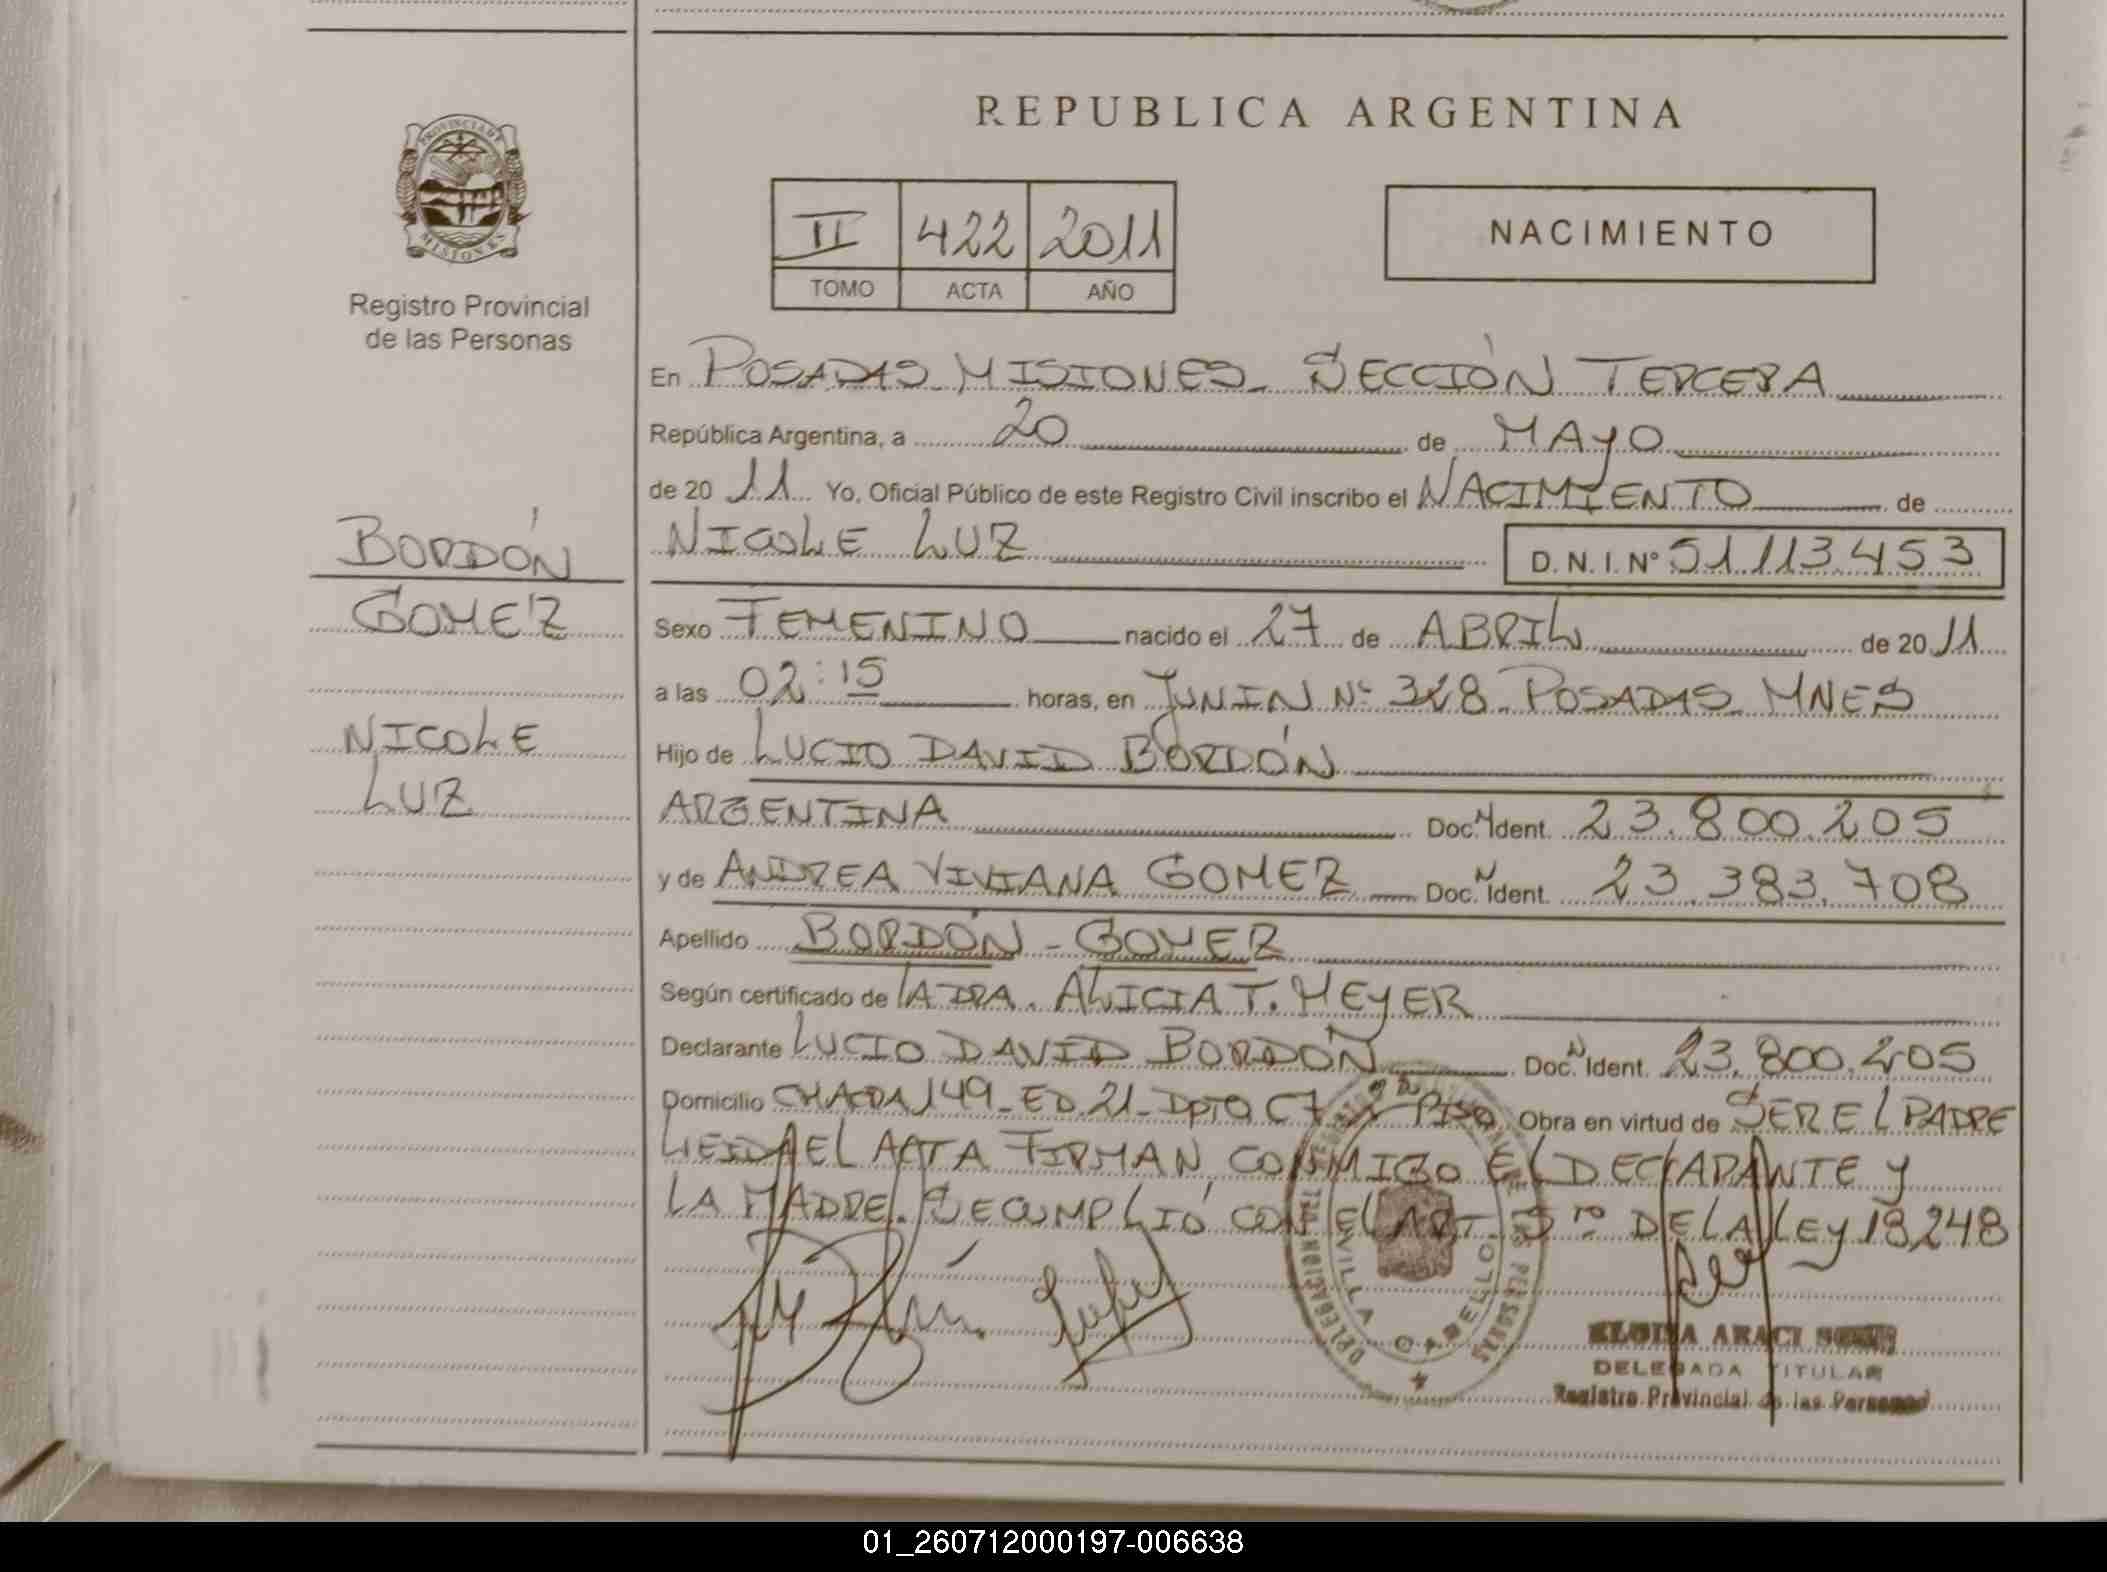 REPUBLICA ARGENTINA
PROVINCIA DE
MISIONES
Registro Provincial
de las Personas
II 422 2011
TOMO ACTA AÑO
NACIMIENTO
BORDÓN
GOMEZ
NICOLE
LUZ
En POSADAS MISIONES SECCIÓN TERCERA
República Argentina, a 20 de MAYO
de 20 11 Yo, Oficial Público de este Registro Civil inscribo el NACIMIENTO de
NICOLE LUZ D.N.I.Nº 51 113 453
Sexo FEMENINO nacido el 27 de ABRIL de 20 11
a las 02:15 horas, en JUNIN Nº 328 POSADAS MNES
Hijo de LUCIO DAVID BORDÓN
ARGENTINA Doc. N Ident. 23.800.205
y de ANDREA VIVIANA GOMEZ Doc. N Ident. 23.383.708
Apellido BORDÓN - GOMEZ
Según certificado de LA DRA. ALICIA T. MEYER
Declarante LUCIO DAVID BORDÓN Doc. N Ident. 23.800.205
Domicilio CHACRA 149 - ED 21 - DPTO C7 PISO Obra en virtud de SER EL PADRE
LEIDA EL ACTA FIRMAN CONMIGO EL DECLARANTE Y
LA MADRE. SE CUMPLIÓ CON EL ART. 5ro DE LA LEY 18248
VILLA CABELLO
ARACI
DELEGADA TITULAR
Registro Provincial de las Personas
01_260712000197-006638